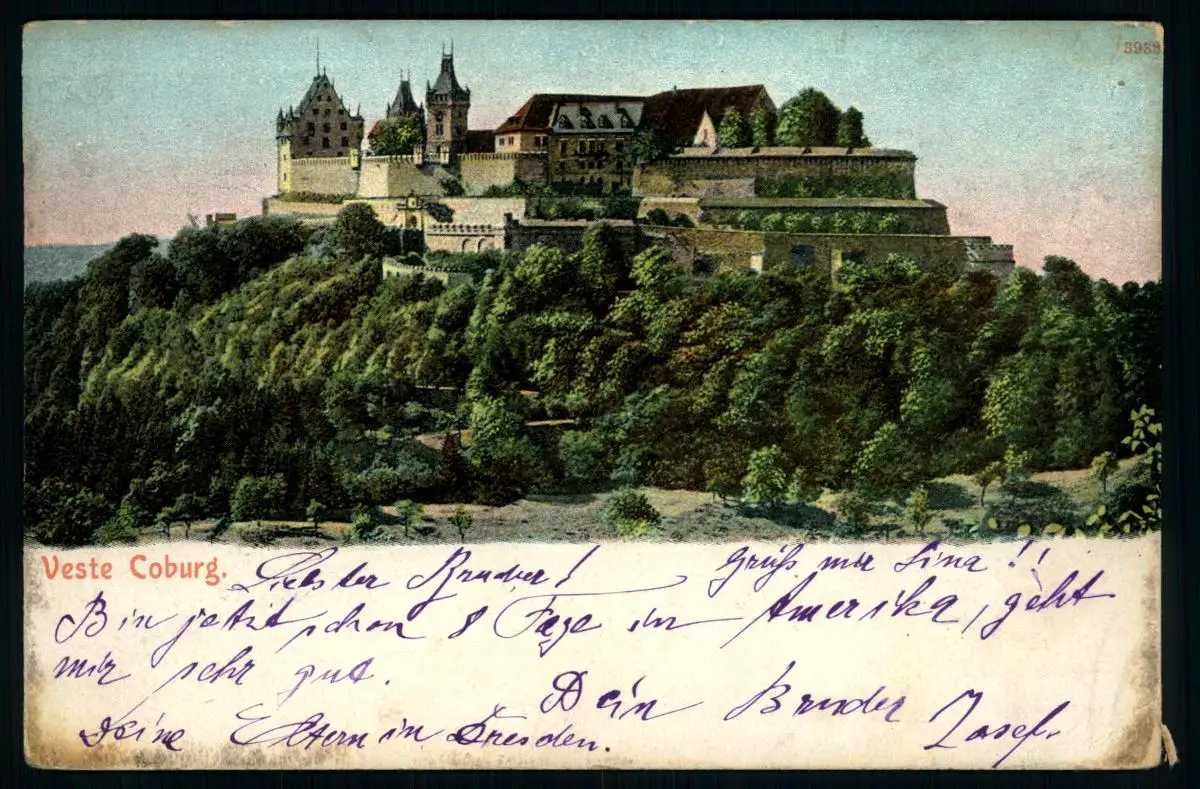 3938
Veste Coburg.
Liebster Bruder! Grüß mir Lina!!
Bin jetzt schon 8 Tage in Amerika, geht
mir sehr gut.
Dein Bruder Josef.
Deine Eltern in Dresden.